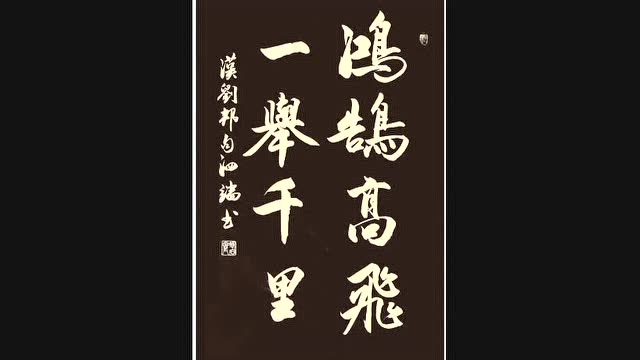 鴻鵠高飛
一舉千里
漢劉邦句泗端书